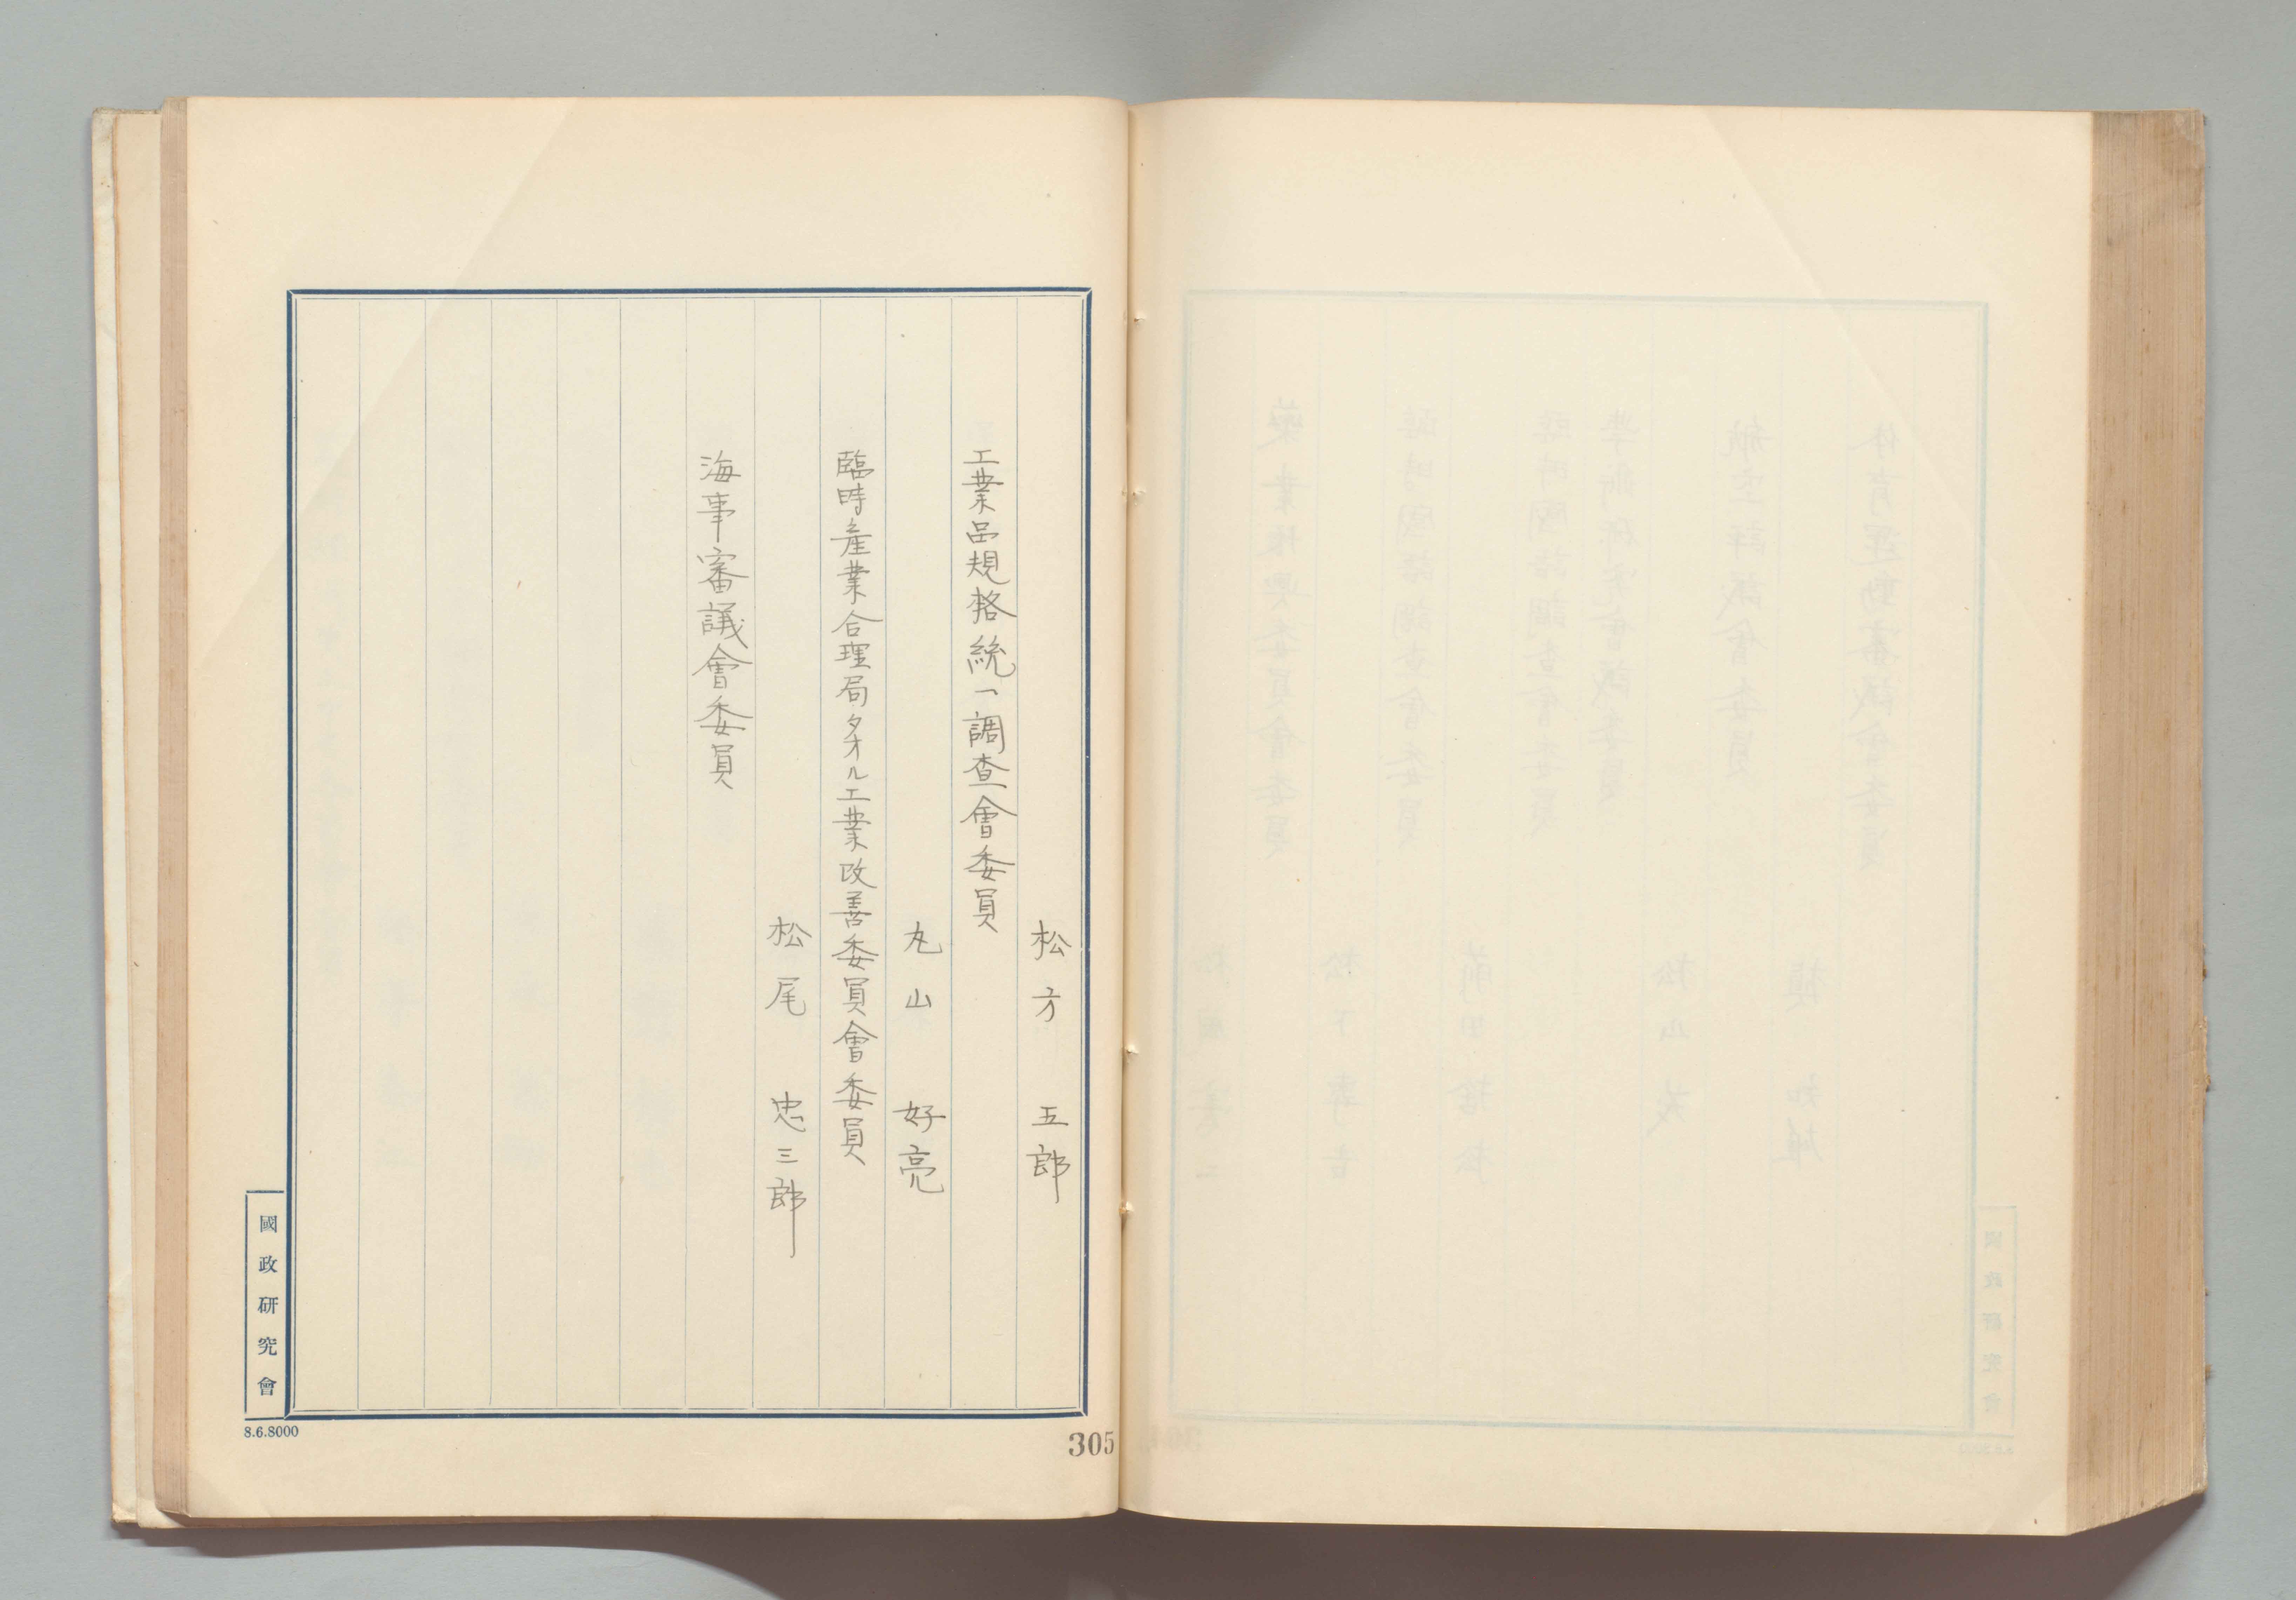 松方 五郎
工業品規格統一調査會委員
丸山 好亮
臨時產業合理局タオル工業改善委員會委員
松尾 忠三郎
海事審議會委員
國政研究會
8.6.8000
305